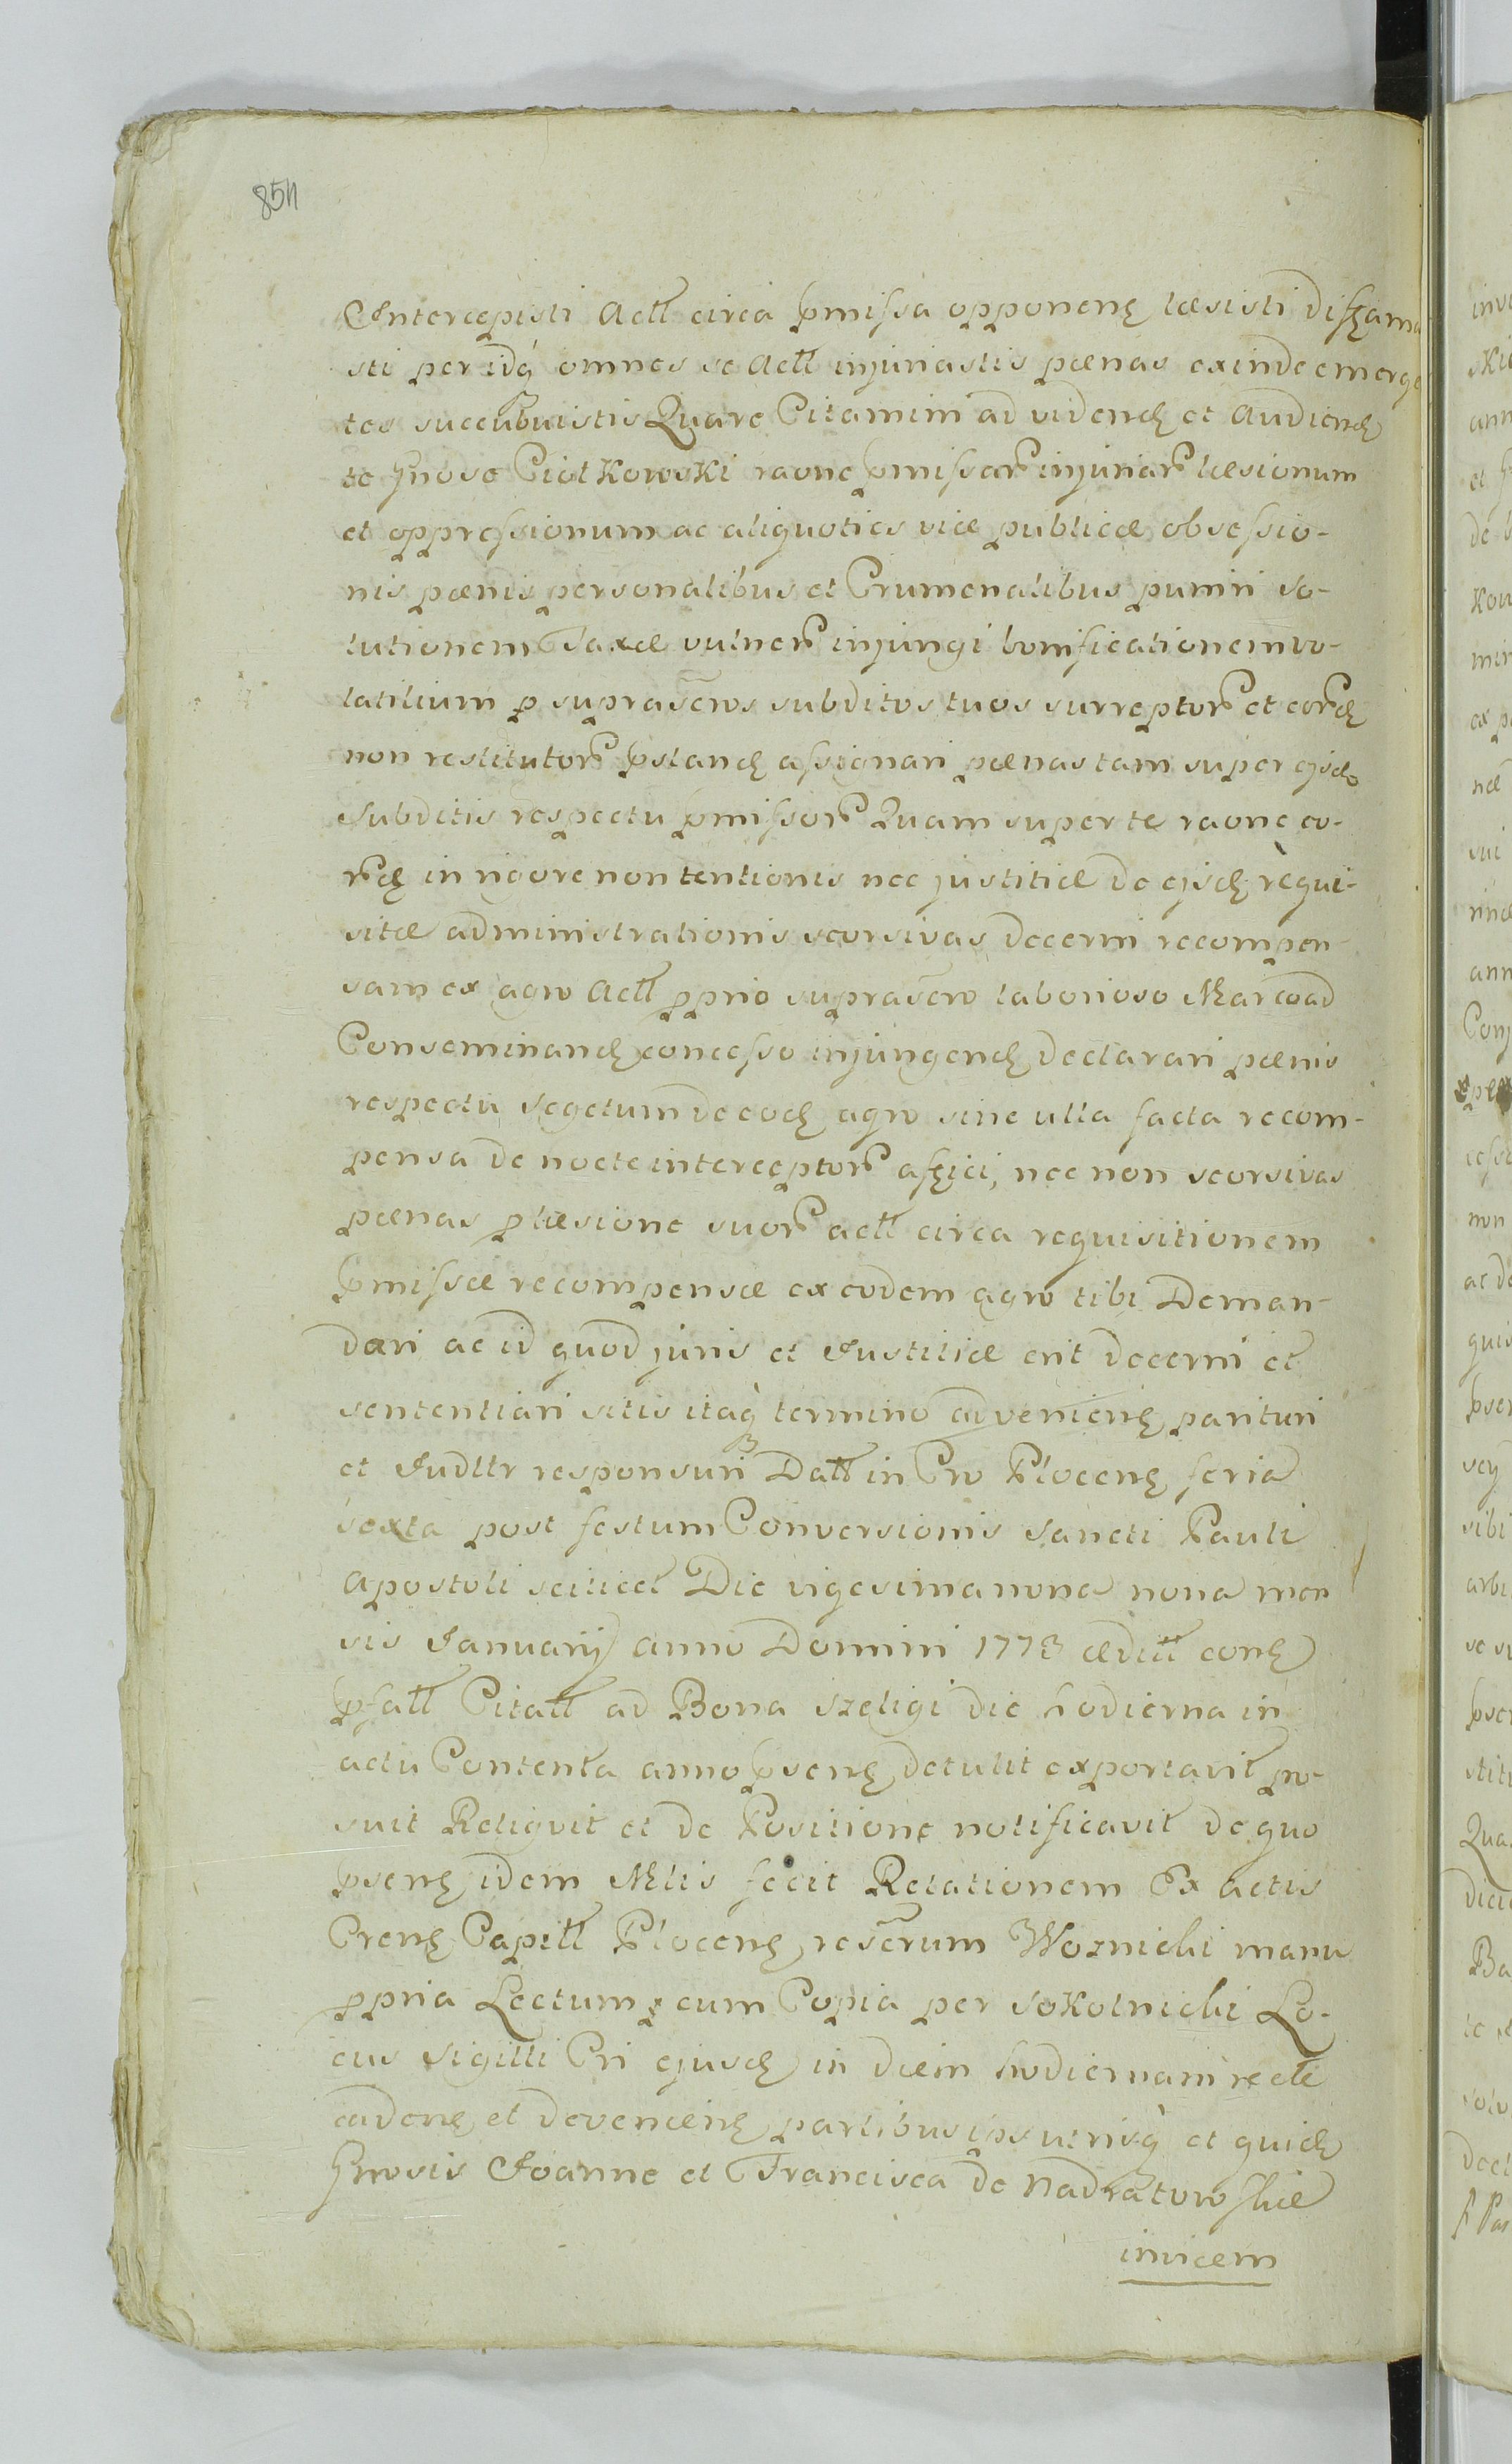 854
Intercepisti Actt circa pmissa opponeng læsisti diffama
sti per idq omnes se Actt injuriastis pænas exinde emerge
tes succubuistis Quare Citamini ad videnđ et Audienđ
te Gnose Piotkowski raone pmissar injuriar læsionum
et oppressionum ac aliquoties viæ publicæ obsessio-
nis pænis personalibus et Crumenalibus puniri so-
lutionem Taxæ vulner injungi bonificationem vo-
latilium p suprascros subditos tuos surreptor et eorđ
non restitutor pstanđ assignari pænas tam super ejsd
Subditis respectu pmissor Quam super te raone eo-
rđ in rigore non tentionis nec justitiæ de ejsđ requi-
sitæ administrationis seorsivas decerni recompen-
sam ex agro Actt pprio suprascro laborioso Marco ad
Conseminanđ concesso injungenđ declarari pænis
respectu segetum de eođ agro sine ulla facta recom-
pensa de nocte interceptor affici, nec non seorsivas
pænas p læsione suor actt circa requisitionem
pmissæ recompensæ ex eodem agro tibi Deman-
dari ac id quod juris et Justitiæ erit decerni et
sententiari sitis itaq termino advenieng parituri
et Judllr responsuri Datt in Cro Ploceng feria
sexta post festum Conversionis Sancti Pauli
Apostoli scilicet Die vigesima nona nona men
sis Januarij anno Domini 1773 ædictt coreg
pfatt Citatt ad Bona Szeligi die hodierna in
actu Contenta anno pseng detulit exportavit po-
suit Reliqvit et de Positione notificavit de quo
pseng idem Mlis fecit Relationem Ex actis
Creng Capitt Ploceng rescrum Woznicki manu
ppria Lectum cum Copia per Sokolnicki Lo-
cus Sigilli Cri ejusđ in diem hodiernam recte
cadeng et deveneing partibus ips utrisq et quiđ
Gnosis Joanne et Francisca de Nadratowskie
invicem